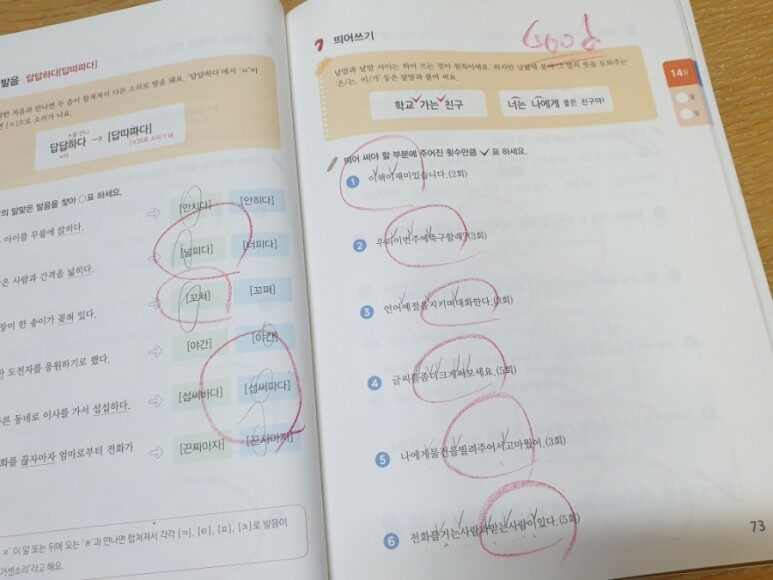 발음 답답하다[답따파다]
한 자음과 만나면 두 음이 합쳐져서 다른 소리로 발음 돼요. '답답하다'에서 'ㅂ'이
[ㅍ]으로 소리가 나요.
답답하다 → [답따파다]
의 알맞은 발음을 찾아 ○표 하세요.
아이를 무릎에 앉히다.
[안치다] [안히다]
은 사람과 간격을 넓히다.
[널피다] [너피다]
장미 한 송이가 꽂혀 있다.
[꼬처] [꼬펴]
도전자를 응원하기로 했다.
[야간]
른 동네로 이사를 가서 섭섭하다.
[섭써바다] [섭써파다]
화를 끊자마자 엄마로부터 전화가
[끈짜마자] [끈차마저]
ㅈ' 이 앞 또는 뒤에 오는 'ㅎ'과 만나면 합쳐져서 각각 [ㅋ], [ㅌ], [ㅍ], [ㅊ]로 발음이
거센소리'라고 해요.
7 띄어쓰기
Good
낱말과 낱말 사이는 띄어 쓰는 것이 원칙이에요. 하지만 낱말에 붙어 그 말의 뜻을 도와주는
'은/는, 이/가' 등은 앞말과 붙여 써요.
학교 가는 친구
너는 나에게 좋은 친구야!
14일
띄어 써야 할 부분에 주어진 횟수만큼 ✓ 표 하세요.
1 이책이재미있습니다.(2회)
2 우리이번주에축구할래?(3회)
3 언어예절을지키며대화한다.(3회)
4 글씨를좀더크게써보세요.(5회)
5 나에게물건을빌려주어서고마웠어.(3회)
6 전화를거는사람과받는사람이있다.(5회)
73